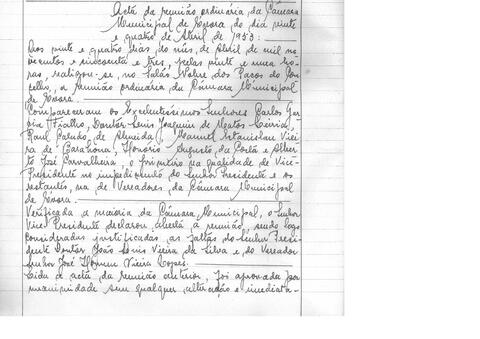 Acta da reunião ordinária da Câmara
Municipal de Évora do dia vinte
e quatro de Abril de 1953:
Aos vinte e quatro dias do mês de Abril de mil no-
vecentos e cincoenta e três, pelas vinte e uma ho-
ras, realizou-se no Salão Nobre dos Paços do Con-
celho, a reunião ordinária da Câmara Municipal
de Évora.
Compareceram os Excelentíssimos Senhores Carlos
Fialho, Doutor Luis Joaquim de Matos
Raul Caludo de Almeida, Manuel Estanislau Viei-
ra de Barahona, Honório Augusto da Costa e Alber-
to José Carvalheira, o primeiro na qualidade de Vice-
Presidente no impedimento do Senhor Presidente e os
restantes, na de Vereadores da Câmara Municipal
de Évora.
Verificada a maioria da Câmara Municipal, o Senhor
Vice Presidente declarou aberta a reunião, sendo logo
consideradas justificadas as faltas do Senhor Presi-
dente Doutor João Luis Vieira da Silva e do Vereador
Senhor José Vieira Lopes.
Lida a acta da reunião anterior, foi aprovada por
unanimidade sem qualquer alteração e imediata-